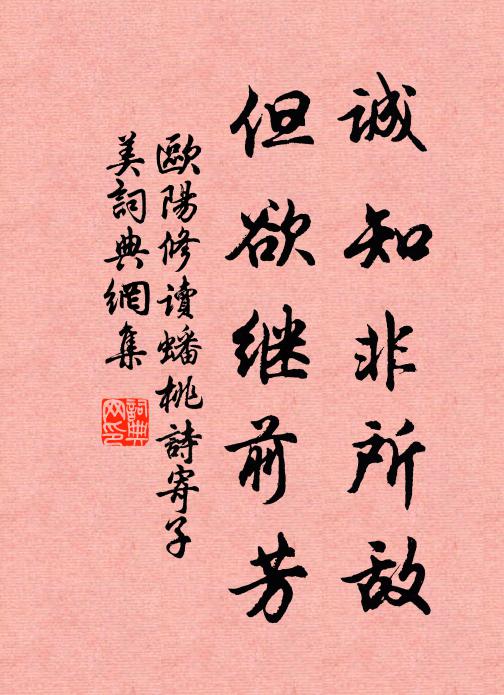 诚知非所敌
但欲继前芳
歐陽修读蟠桃詩寄子
美詞典網集
詞典
网印